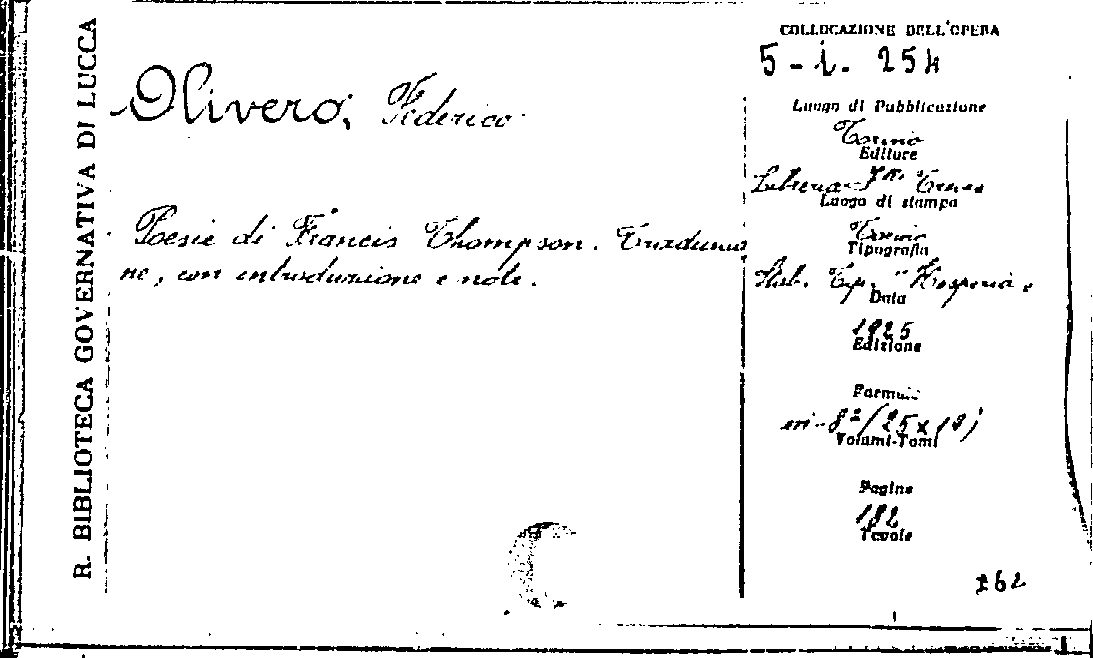 R. BIBLIOTECA GOVERNATIVA DI LUCCA
Olivero, Federico
Poesie di Francis Thompson. Traduzio
ne, con introduzione e note.
COLLOCAZIONE DELL'OPERA
5 - i. 254
Luogo di Pubblicazione
Torino
Editore
Libreria F.lli Treves
Luogo di stampa
Torino
Tipografia
Stab. Tip. "Hesperia"
Data
1925
Edizione
Formato
in-8º (25x18)
Volumi-Tomi
Pagine
182
Tavole
262